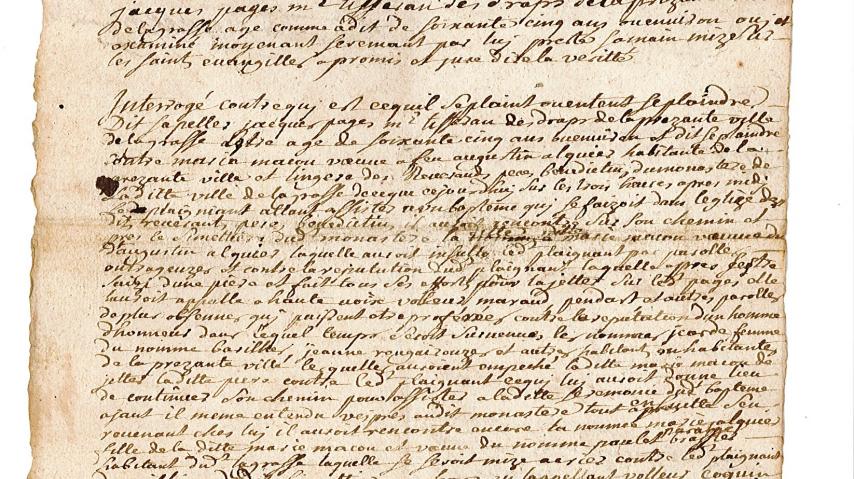 jacques pages mre tisseran des draps de la prezante
de lagrasse age comme a dit de soixante cinq ans ou environ ouj et
examiné moyenant serement par luj preste sa main mize sur
les saints evangilles a promis et jure dire la veritté
Interrogé contre quj est ce quil se plaint ou entent se plaindre
Dit sapeller jacques pages mre tisseran des draps de la prezante ville
de lagrasse estre age de soixante cinq ans ou environ et dit se plaindre
contre marie macou veuve a feu augustin alquier habitante de la
prezante ville et lingere des Reverands peres benedictins du monastere de
laditte ville de lagrasse de ce que ce jourdhuj sur les trois heures apres midj
led plaignant allant assister a un baptême quj se faizoit dans leglize des
dits reverants peres benedictins il auroit rencontré sur son chemin et
pres le simettiere dud monastere la marie macou veuve du
d augustin alquier laquelle auroit insulte led plaignant par parolles
outrageuzes et contre la reputation dud plaignant laquelle apres sestre
saizi dune piere et fait tous ses efforts pour la jetter sur led pages elle
lauroit appelle a haute voix volleur maraud pendart et autres parolles
de plus obsenes quj puissent estre proferées contre la reputation dun homme
dhonneur dans lequel temps seroit survenues les nommées femme
du nomme basille, jeanne et autres habitans ou habitantes
de la prezante ville, lesquelles auroient empeché laditte marie macou de
jetter laditte piere contre led plaignant ce quj luj auroit donne lieu
de continuer son chemin pour assister a laditte seremonie dud bapteme
ajant il meme entendu vespres audit monastere tout en
revenant ches luj il auroit rencontre encore la nommée marie alquier
fille de la ditte marie macou et veuve du nomme paulet
habitant dud lagrasse laquelle se seroit mize a crier contre led plaignant
lappellant volleur coquin